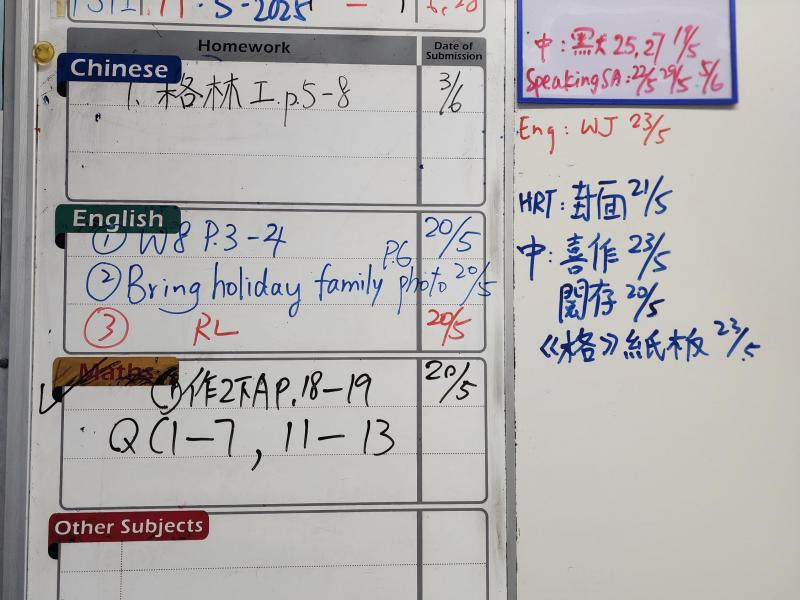 5-2025
Homework
Date of Submission
Chinese
1. 格林工.p.5-8
3/6
English
① W8 P.3-4
20/5
P.6
② Bring holiday family photo 20/5
③ RL
20/5
Maths
① 作2下A P.18-19
20/5
Q(1-7, 11-13
Other Subjects
中: 黑大25,27 19/5
Speaking SA: 22/5 29/5 5/6
Eng: WJ 23/5
HRT: 封面 21/5
中: 喜作 23/5
閱存 20/5
《格》紙板 23/5